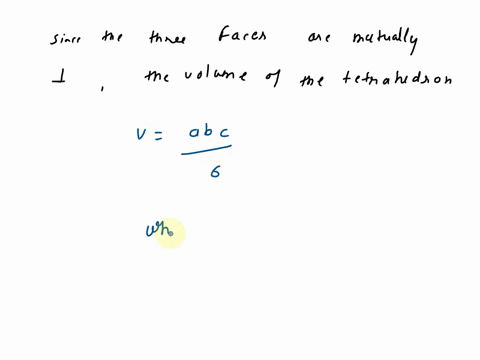 since the three faces are mutually
⊥ , the volume of the tetrahedron
v = abc
6
wh